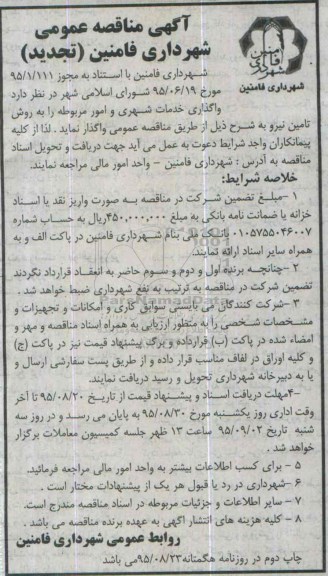 آگهی مناقصه عمومی
شهرداری فامنین (تجدید)
شهرداری فامنین
شهرداری فامنین با استناد به مجوز ۹۵/۱/۱۱۱
مورخ ۹۵/۰۶/۱۹ شورای اسلامی شهر در نظر دارد
واگذاری خدمات شهری و امور مربوطه را به روش
تامین نیرو به شرح ذیل از طریق مناقصه عمومی واگذار نماید . لذا از کلیه
پیمانکاران واجد شرایط دعوت به عمل می آید جهت دریافت و تحویل اسناد
مناقصه به آدرس : شهرداری فامنین - واحد امور مالی مراجعه نمایند.
خلاصه شرایط:
۱ -مبلغ تضمین شرکت در مناقصه به صورت واریز نقد یا اسناد
خزانه یا ضمانت نامه بانکی به مبلغ ۴۵۰,۰۰۰,۰۰۰ریال به حساب شماره
۰۱۰۵۷۵۵۰۴۶۰۰۷ بانک ملی بنام شهرداری فامنین در پاکت الف و به
همراه سایر اسناد ارائه نمایند.
۲ -چنانچه برنده اول و دوم و سوم حاضر به انعقاد قرارداد نگردند
تضمین شرکت در مناقصه به ترتیب به نفع شهرداری ضبط خواهد شد .
۳ -شرکت کنندگان می بایستی سوابق کاری و امکانات و تجهیزات و
مشخصات شخصی را به منظور ارزیابی به همراه اسناد مناقصه و مهر و
امضاء شده در پاکت (ب) قرارداده و برگ پیشنهاد قیمت نیز در پاکت (ج)
و کلیه اوراق در لفاف مناسب قرار داده و از طریق پست سفارشی ارسال و
یا به دبیرخانه شهرداری تحویل و رسید دریافت نمایند.
-۴مهلت دریافت اسناد و پیشنهاد قیمت از تاریخ ۹۵/۰۸/۲۰ تا آخر
وقت اداری روز یکشنبه مورخ ۹۵/۰۸/۳۰ به پایان می رسد و در روز سه
شنبه تاریخ ۹۵/۰۹/۰۲ ساعت ۱۳ ظهر جلسه کمیسیون معاملات برگزار
خواهد شد .
۵ - برای کسب اطلاعات بیشتر به واحد امور مالی مراجعه فرمائید.
۶ -شهرداری در رد یا قبول هر یک از پیشنهادات مختار است .
۷ - سایر اطلاعات و جزئیات مربوطه در اسناد مناقصه مندرج است.
۸ - کلیه هزینه های انتشار آگهی به عهده برنده مناقصه می باشد .
روابط عمومی شهرداری فامنین
چاپ دوم در روزنامه هگمتانه۹۵/۰۸/۲۳می باشد